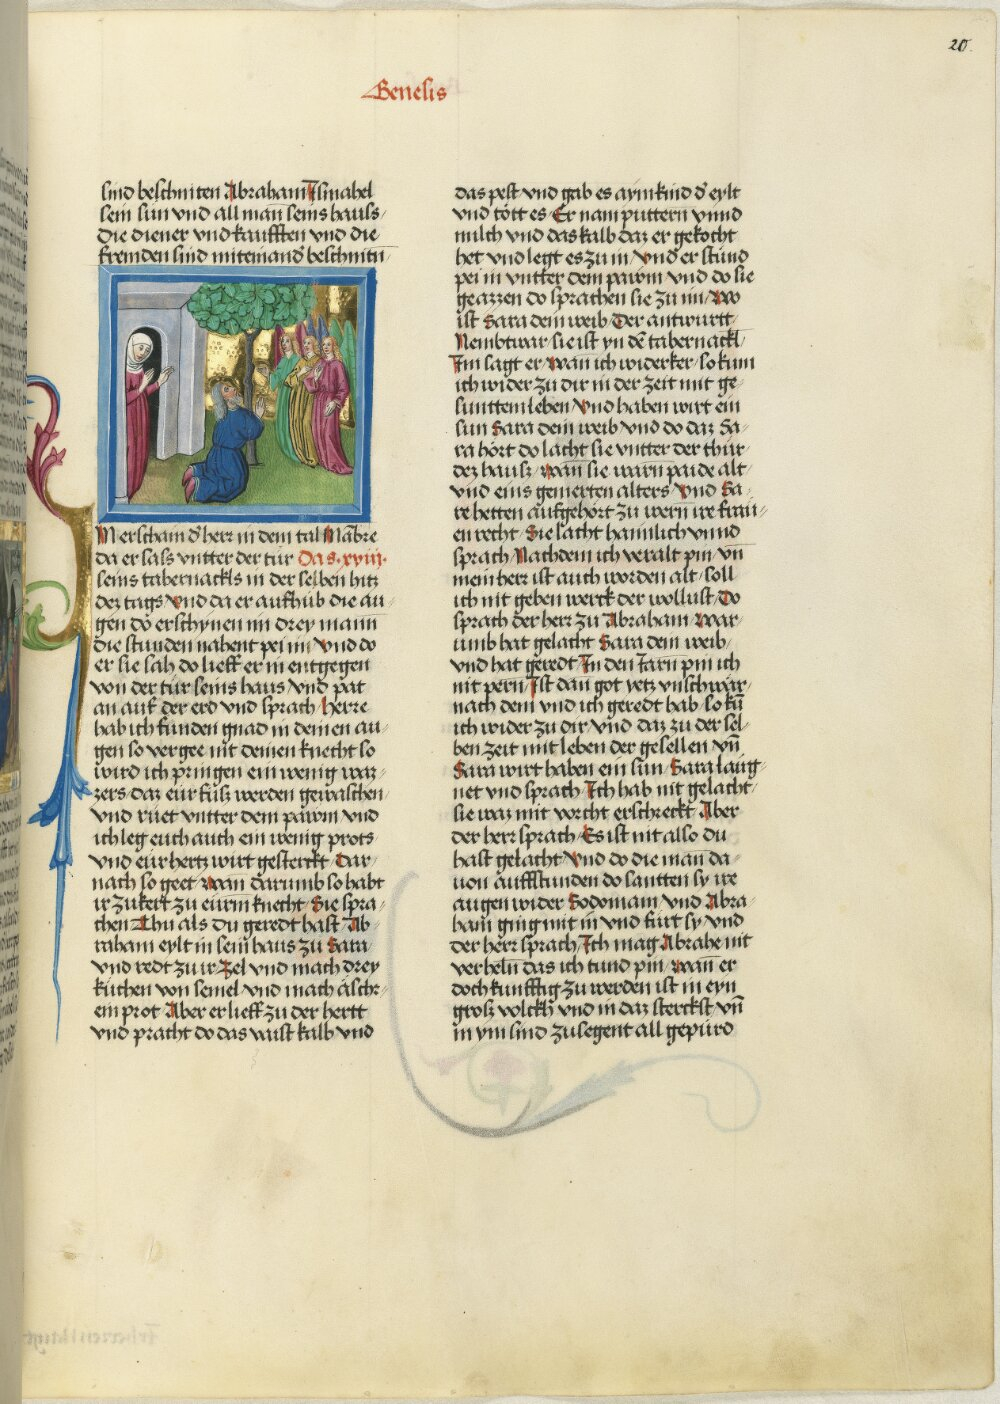 20.
Genesis
sind beschniten Abraham Ismahel
sein sun vnd all man seins hauss/
die diener vnd kaufften vnd die
fremden sind miteinand̕ beschnitn̄
Im erschain d̕ herr in dem tal Mābre
da er sass vntter der tür Das .xviii.
seins tabernackls in der selben hitz
dez tags Vnd da er aufhüb die au/
gen do erschynen im drey mann
die stunden nahent pei im Vnd do
er sie sah do lieff er in entgegen
von der tür seins haus Vnd pat
an auf der erd vnd sprach Herre
hab ich funden gnad in deinen au/
gen so vergee nit deinen knecht so
wird ich pringen ein wenig waz/
zers daz eur füss werden gewaschen/
vnd ruet vntter dem pawm vnd
ich leg euch auch ein wenig prots
vnd eur hertz wirt gesterckt Dar/
nach so geet Wan darumb so habt
ir zukert zu eurm knecht Sie spra/
chen Thu als du geredt hast Ab/
raham eylt in sein haus zu Sara
vnd redt zu ir Zel vnd mach drey
kuchen von semel vnd mach aschr/
ein prot Aber er lieff zu der hertt
vnd pracht do das waist kalb vnd
das pest vnd gab es aym kind d̕ eylt
vnd tött es Er nam puttern vnnd
milch vnd das kalb daz er gekocht
het vnd legt es zu in Vnd er stund
pei in vntter dem pawm vnd do sie
geazzen do sprachen sie zu im Wo
ist Sara dein weib Der antwurtt/
Nembt war sie ist yn dē tabernackl/
Im sagt er Wan ich widerker so kum
ich wider zu dir in der zeit mit ge/
sunttem leben Vnd haben wirt ein
sun Sara dein weib Vnd do daz Sa/
ra hört do lacht sie vntter der thür
dez hausz Wan sie warn paide alt/
vnd eins gemerten alters Vnd Sa/
re hetten aufgehört zu wern ire fraw/
en recht Sie lacht haimlich vnnd
sprach Nachdem ich veralt pin vn̄
mein herr ist auch worden alt/ soll
ich nit geben werck der wollust Do
sprach der herr zu Abraham War/
umb hat gelacht Sara dein weib/
vnd hat geredt In den Jarn pin ich
nit pern Ist dan got yetz vnschwär/
nach dem vnd ich geredt hab/ so kū
ich wider zu dir Vnd daz zu der sel/
ben zeit mit leben der gesellen vn̄
Sara wirt haben ein sun Sara laug/
net vnd sprach Ich hab nit gelacht/
sie waz mit vorcht erschreckt Aber
der herr sprach Es ist nit also du
hast gelacht Vnd do die man da/
uon auffstunden do santten sy ire
augen wider Sodomam vnd Abra/
ham ging mit in vnd furt sy Vnd
der herr sprach Ich mag Abrahe nit
verheln das ich tund pin Wan er
doch kunfftig zu werden ist in eyn
grosz volckh vnd in daz sterckst vn̄
in ym sind zu segent all gepurd